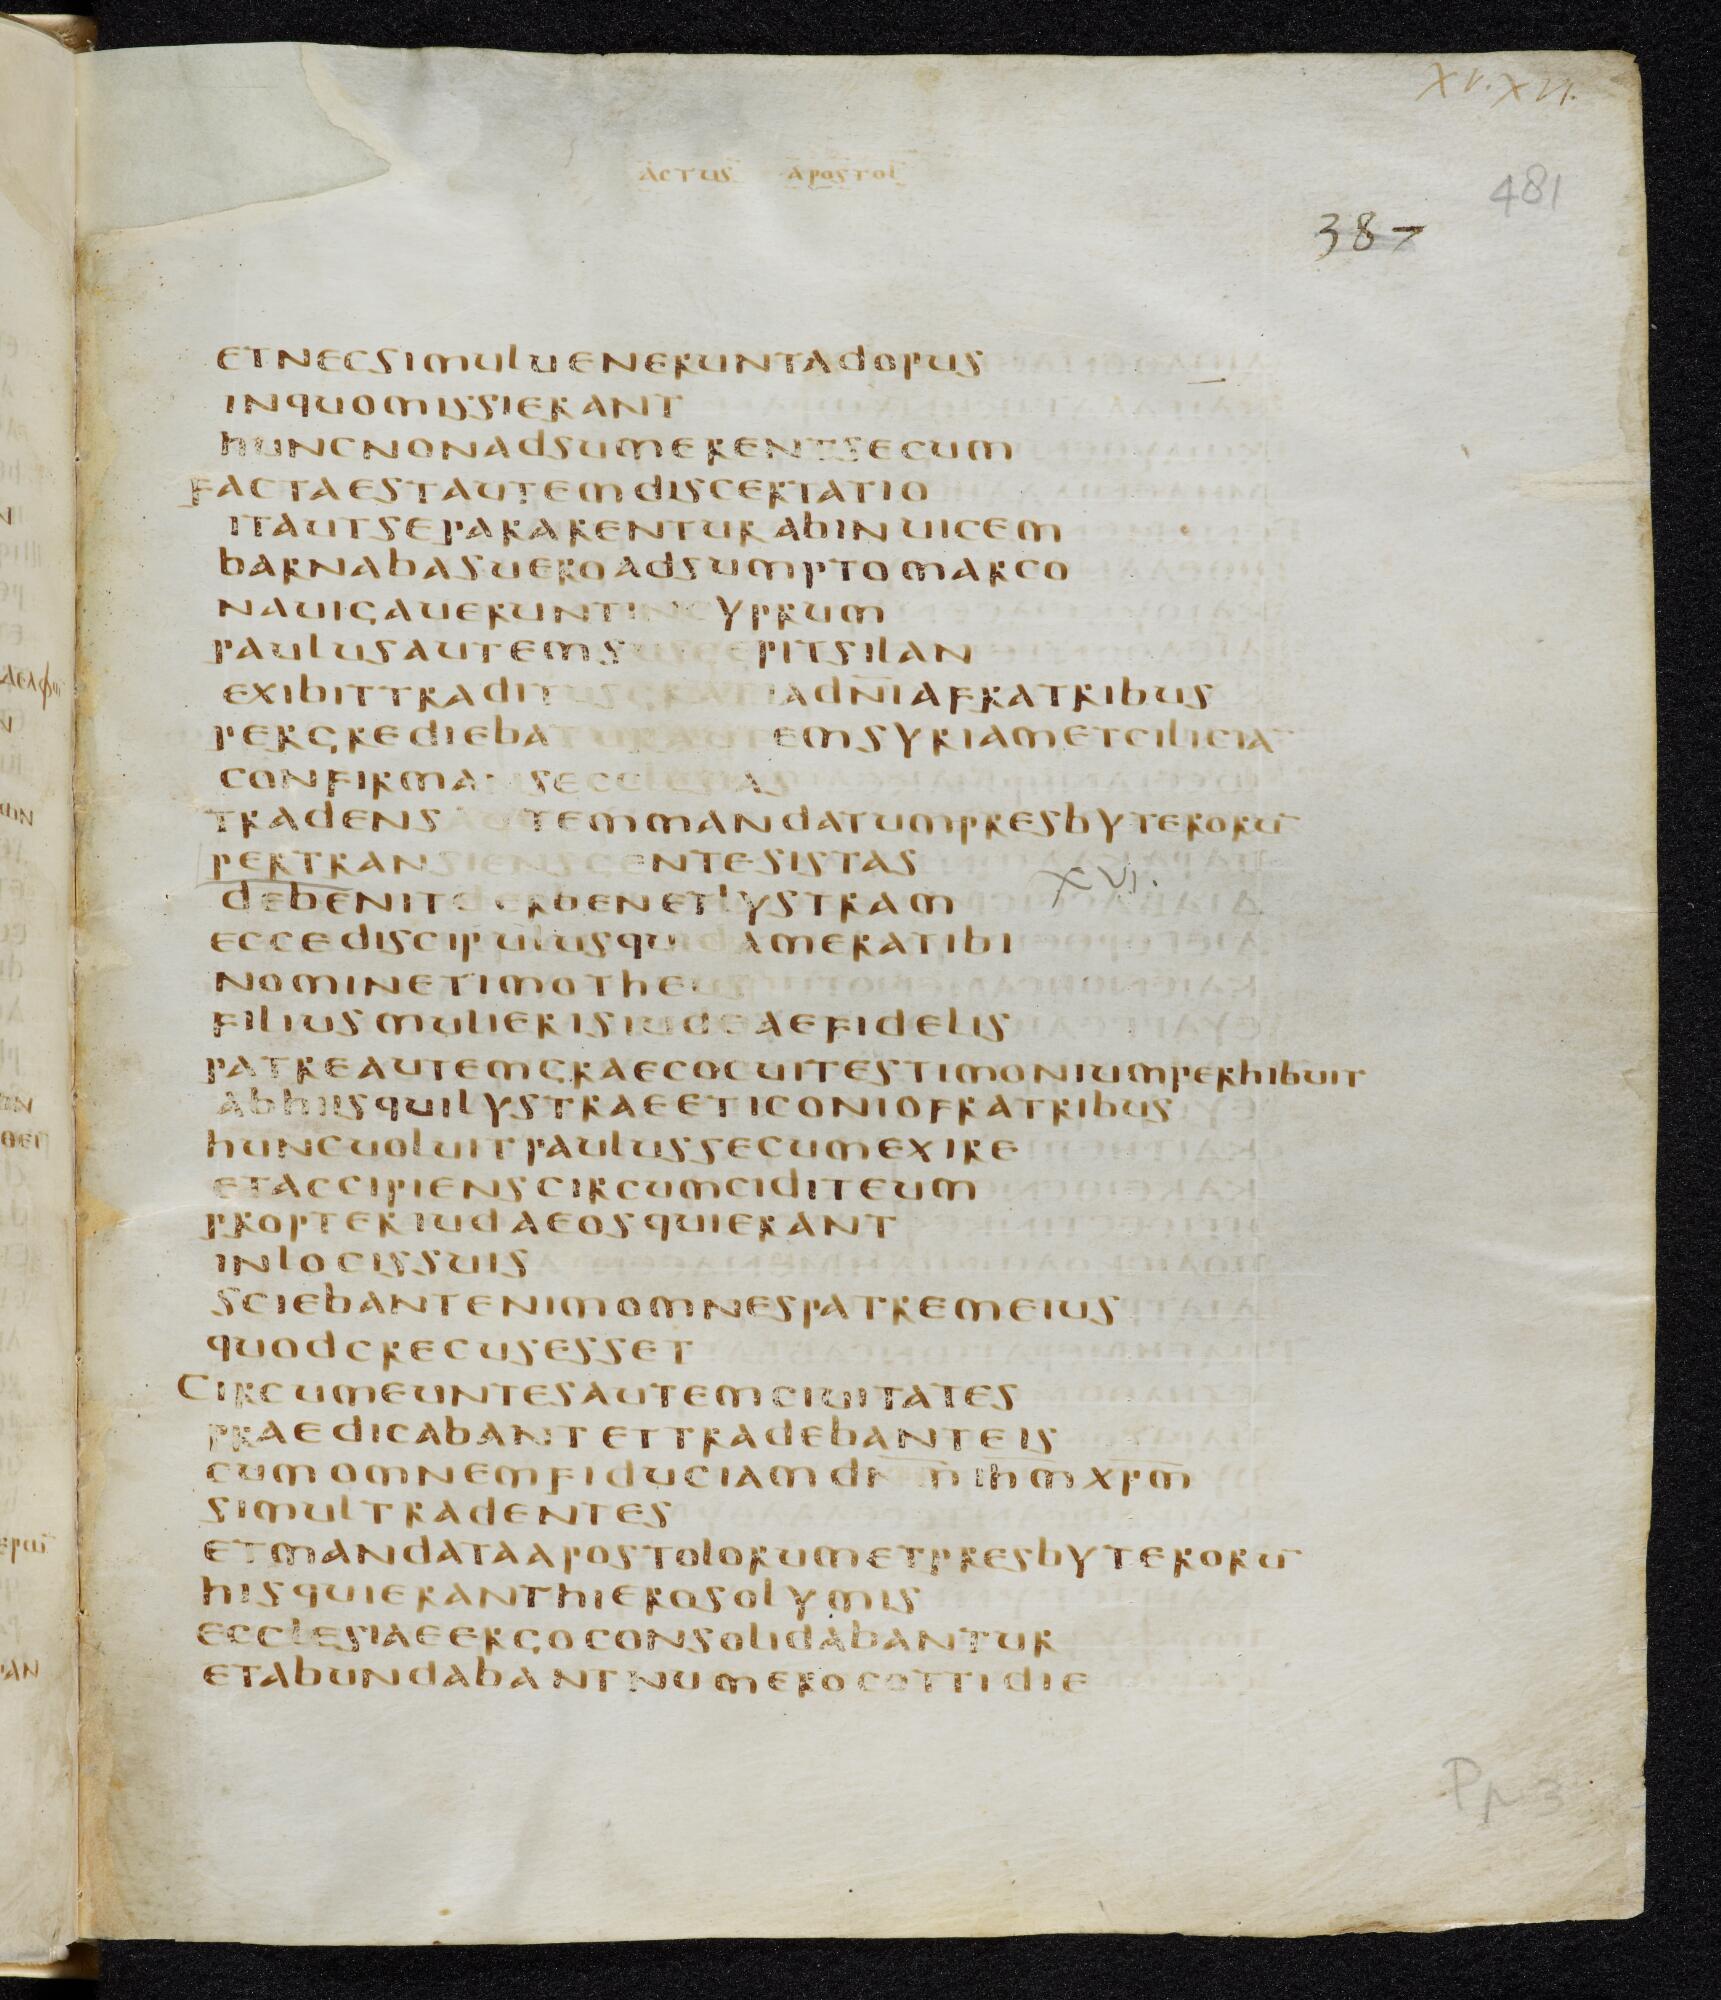 XV. XVI.
ACTUS APOSTOL
481
387
ETNECSIMULUENERUNTADOPUS
INQUOMISSIERANT
HUNCNONADSUMERENTSECUM
FACTAESTAUTEMDISCERTATIO
ITAUTSEPARARENTURABINUICEM
BARNABASUEROADSUMPTOMARCO
NAUIGAUERUNTINCYPRUM
PAULUSAUTEMSUSCEPITSILAN
EXIBITTRADITUSGRATIADN̄IAFRATRIBUS
PERGREDIEBATURAUTEMSYRIAMETCILICIA¯
CONFIRMANSECCLESIAS
TRADENSAUTEMMANDATUMPRESBYTERORU¯
PERTRANSIENSGENTESISTAS
XVI.
DEBENITDERBENETLYSTRAM
ECCEDISCIPULUSQUIDAMERATIBI
NOMINETIMOTHEUS
FILIUSMULIERISIUDEAEFIDELIS
PATREAUTEMGRAECOCUITESTIMONIUMPERHIBUIT
ABHIISQUILYSTRAEETICONIOFRATRIBUS
HUNCUOLUITPAULUSSECUMEXIRE
ETACCIPIENSCIRCUMCIDITEUM
PROPTERIUDAEOSQUIERANT
INLOCISSUIS
SCIEBANTENIMOMNESPATREMEIUS
QUODCRECUSESSET
CIRCUMEUNTESAUTEMCIUITATES
PRAEDICABANTETTRADEBANTEIS
CUMOMNEMFIDUCIAMDN̄M̄IHM̄XPM̄
SIMULTRADENTES
ETMANDATAAPOSTOLORUMETPRESBYTERORU¯
HISQUIERANTHIEROSOLYMIS
ECCLESIAEERGOCONSOLIDABANTUR
ETABUNDABANTNUMEROCOTTIDIE